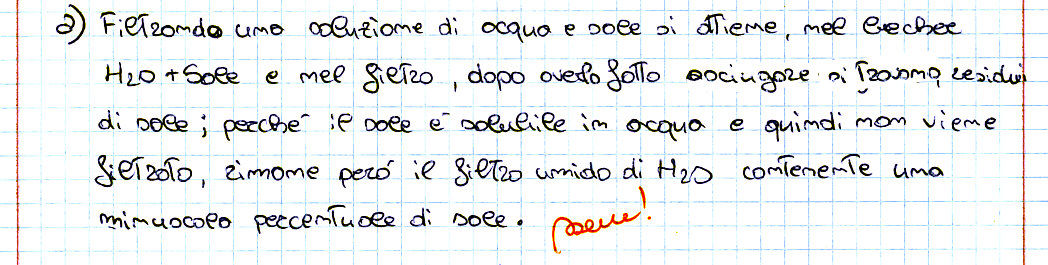 2) Filtrando una soluzione di acqua e sale si ottiene, nel becher
H2O + Sale e nel filtro, dopo averlo fatto asciugare si trovano residui
di sale; perché il sale è solubile in acqua e quindi non viene
filtrato, rimane però il filtro umido di H2O contenente una
minuscola percentuale di sale. bene!